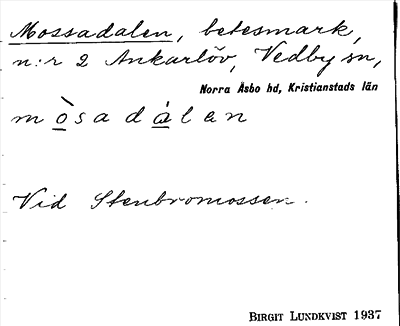 Mossadalen, betesmark,
n:r 2 Ankarlöv, Vedby sn,
Norra Åsbo hd, Kristianstads län
mòsadálen
Vid Stenbromossen.
BIRGIT LUNDKVIST 1937